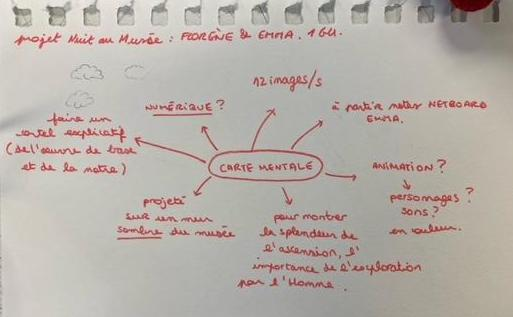 projet Nuit au Musée : FLORGÈNE & EMMA. 1G4.
12 images/s
NUMÉRIQUE ?
à partir notre NETBOARD
EMMA.
faire un
cartel explicatif
(de l'œuvre de base
et de la notre)
CARTE MENTALE
ANIMATION ?
personnages ?
sons ?
en couleur.
projeté
sur un mur
sombre du musée
pour montrer
la splendeur de
l'ascension, l'
importance de l'exploration
par l'Homme.